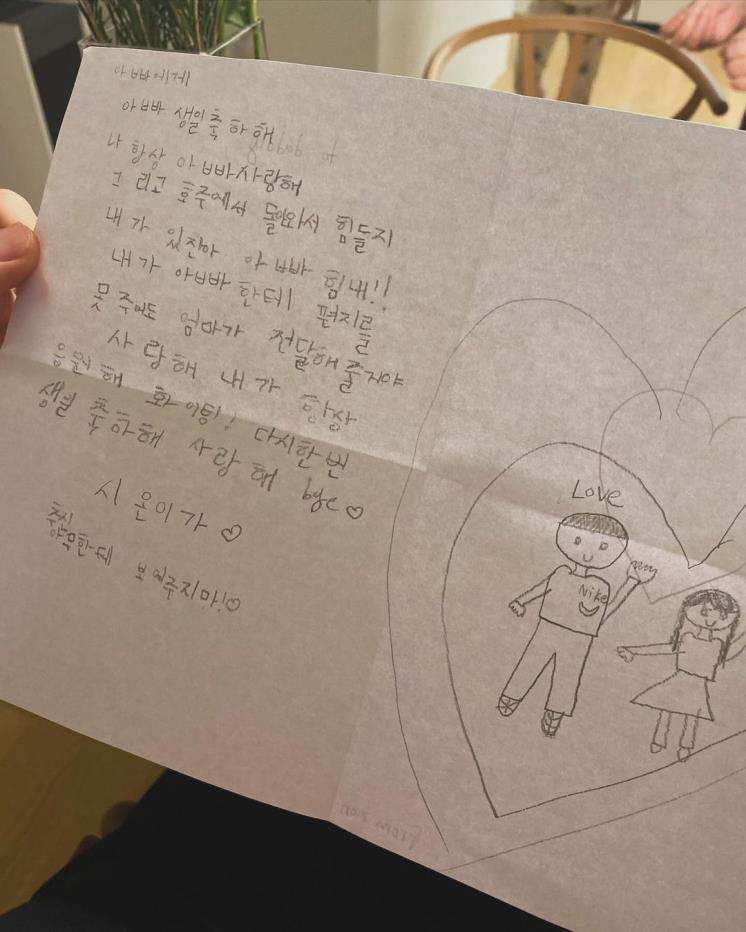 아빠에게
아빠 생일 축하해
나 항상 아빠 사랑해
그리고 호주에서 돌아와서 힘들지
내가 있잖아 아빠 힘내!!
내가 아빠한테 편지를
못 주어도 엄마가 전달해 줄거야
사랑해 내가 항상
응원해 화이팅! 다시한번
생일 축하해 사랑해 bye♡
시온이가♡
추신
아무한테 보여주지마!♡
Love
Nike